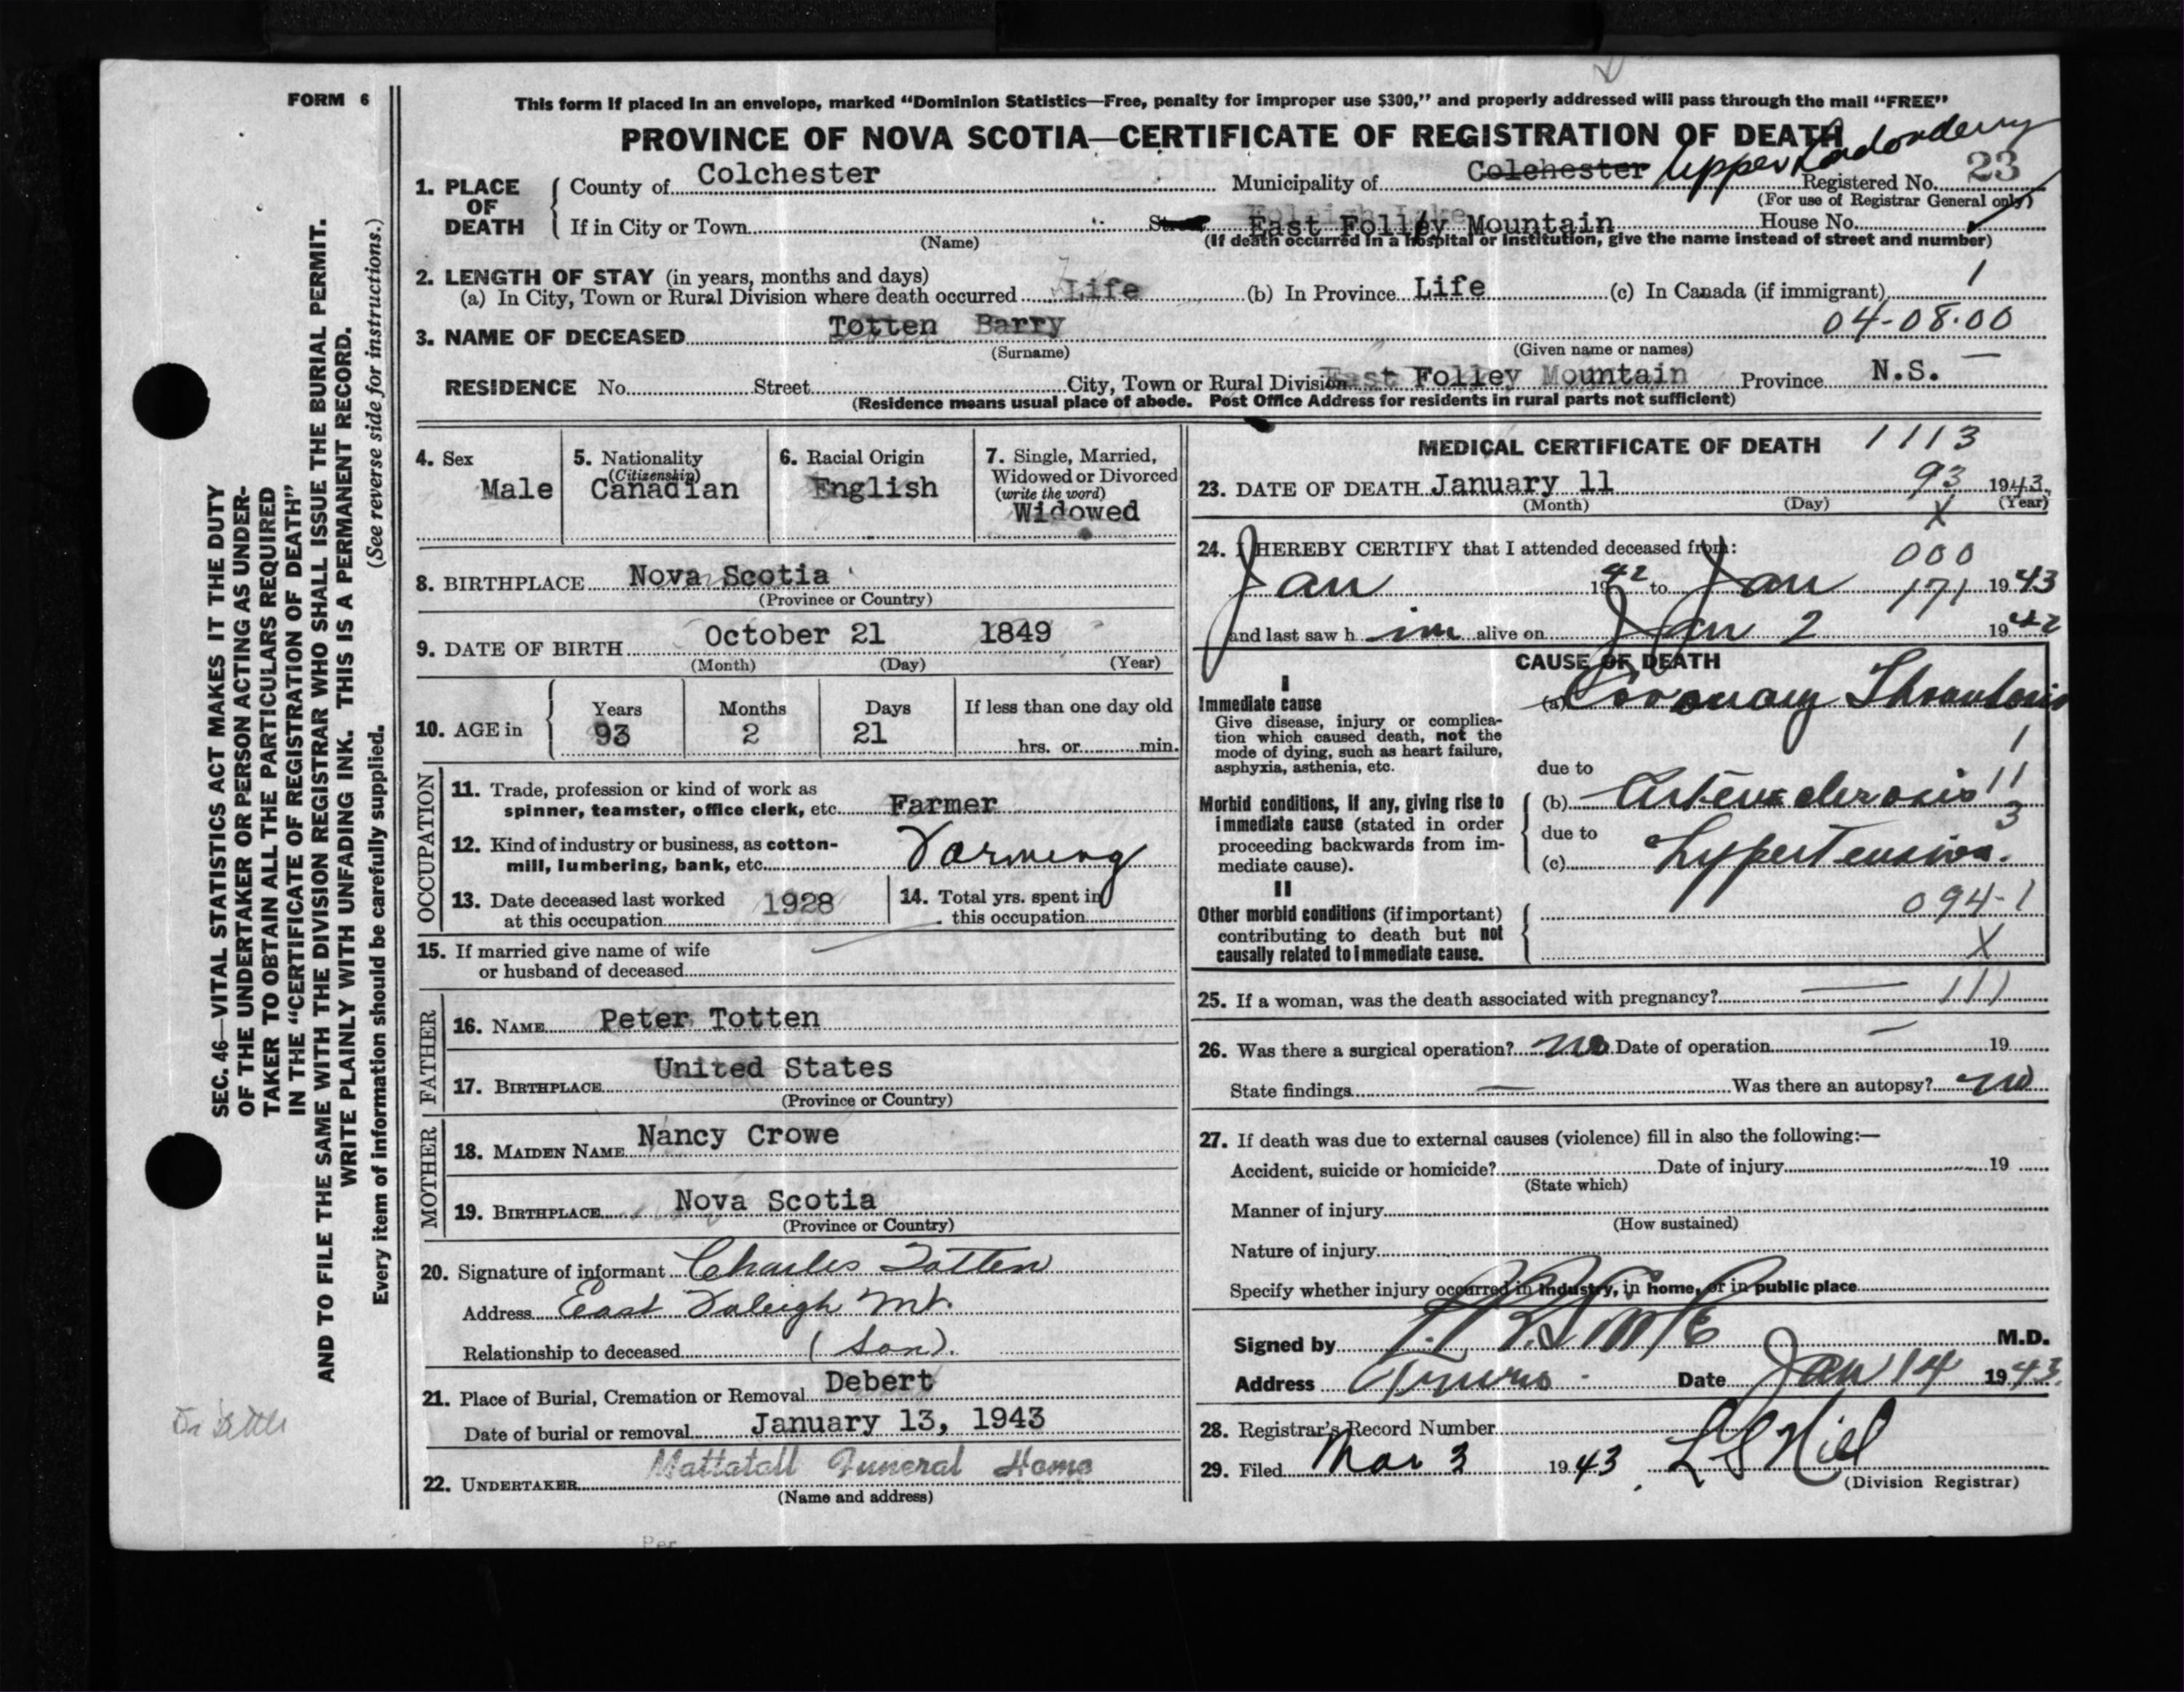 FORM 6
This form if placed in an envelope, marked "Dominion Statistics—Free, penalty for improper use $300," and properly addressed will pass through the mail "FREE"
PROVINCE OF NOVA SCOTIA—CERTIFICATE OF REGISTRATION OF DEATH
1. PLACE OF DEATH
County of Colchester Municipality of Colchester Upper Londonderry Registered No. 23
(For use of Registrar General only)
If in City or Town East Folley Mountain House No.
(Name) (If death occurred in a hospital or institution, give the name instead of street and number)
2. LENGTH OF STAY (in years, months and days)
(a) In City, Town or Rural Division where death occurred Life (b) In Province Life (c) In Canada (if immigrant) 1
3. NAME OF DECEASED Totten Barry 04-08.00
(Surname) (Given name or names)
RESIDENCE No. Street City, Town or Rural Division East Folley Mountain Province N.S.
(Residence means usual place of abode. Post Office Address for residents in rural parts not sufficient)
4. Sex Male
5. Nationality (Citizenship) Canadian
6. Racial Origin English
7. Single, Married, Widowed or Divorced (write the word) Widowed
8. BIRTHPLACE Nova Scotia
(Province or Country)
9. DATE OF BIRTH October 21 1849
(Month) (Day) (Year)
10. AGE in Years 93 Months 2 Days 21 If less than one day old hrs. or min.
OCCUPATION
11. Trade, profession or kind of work as spinner, teamster, office clerk, etc. Farmer
12. Kind of industry or business, as cotton-mill, lumbering, bank, etc. Farming
13. Date deceased last worked at this occupation 1928
14. Total yrs. spent in this occupation
15. If married give name of wife or husband of deceased
FATHER
16. NAME Peter Totten
17. BIRTHPLACE United States
(Province or Country)
MOTHER
18. MAIDEN NAME Nancy Crowe
19. BIRTHPLACE Nova Scotia
(Province or Country)
20. Signature of informant Charles Totten
Address East Foleigh Mt.
Relationship to deceased (Son).
21. Place of Burial, Cremation or Removal Debert
Date of burial or removal January 13, 1943
22. UNDERTAKER Mattatall Funeral Home
(Name and address)
Per
MEDICAL CERTIFICATE OF DEATH 1113
23. DATE OF DEATH January 11 93 1943
(Month) (Day) (Year)
X
24. I HEREBY CERTIFY that I attended deceased from: 000
Jan 1942 to Jan 171 1943
and last saw h im alive on Jan 2 1942
CAUSE OF DEATH
I
Immediate cause (a) Coronary Thrombosis
Give disease, injury or complication which caused death, not the mode of dying, such as heart failure, asphyxia, asthenia, etc.
1
due to
Morbid conditions, if any, giving rise to immediate cause (stated in order proceeding backwards from immediate cause).
(b) Arteriosclerosis 11
3
due to
(c) Hypertension.
II
Other morbid conditions (if important) contributing to death but not causally related to immediate cause.
094-1
X
25. If a woman, was the death associated with pregnancy? — 111
26. Was there a surgical operation? no Date of operation — 19
State findings — Was there an autopsy? no
27. If death was due to external causes (violence) fill in also the following:—
Accident, suicide or homicide? Date of injury 19
(State which)
Manner of injury
(How sustained)
Nature of injury
Specify whether injury occurred in industry, in home, or in public place
Signed by M.D.
Address Truro Date Jan 14 1943.
28. Registrar's Record Number
29. Filed Mar 3 1943.
(Division Registrar)
SEC. 46—VITAL STATISTICS ACT MAKES IT THE DUTY
OF THE UNDERTAKER OR PERSON ACTING AS UNDER-
TAKER TO OBTAIN ALL THE PARTICULARS REQUIRED
IN THE "CERTIFICATE OF REGISTRATION OF DEATH"
AND TO FILE THE SAME WITH THE DIVISION REGISTRAR WHO SHALL ISSUE THE BURIAL PERMIT.
WRITE PLAINLY WITH UNFADING INK. THIS IS A PERMANENT RECORD.
Every item of information should be carefully supplied. (See reverse side for instructions.)